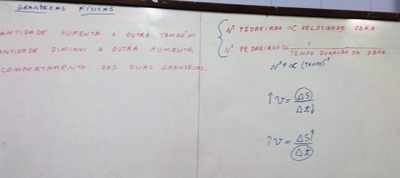 GRANDEZAS FÍSICAS
ANTIDADE AUMENTA A OUTRA TAMBÉM
ANTIDADE DIMINUI A OUTRA AUMENTA
COMPORTAMENTO DAS DUAS GRANDEZAS
Nº PEDREIROS ∝ VELOCIDADE OBRA
Nº PEDREIROS ∝ 1 / TEMPO DURAÇÃO DA OBRA
Nº P ∝ (TEMPO)⁻¹
↑v = ΔS / Δt↓
↑v = ΔS↑ / Δt